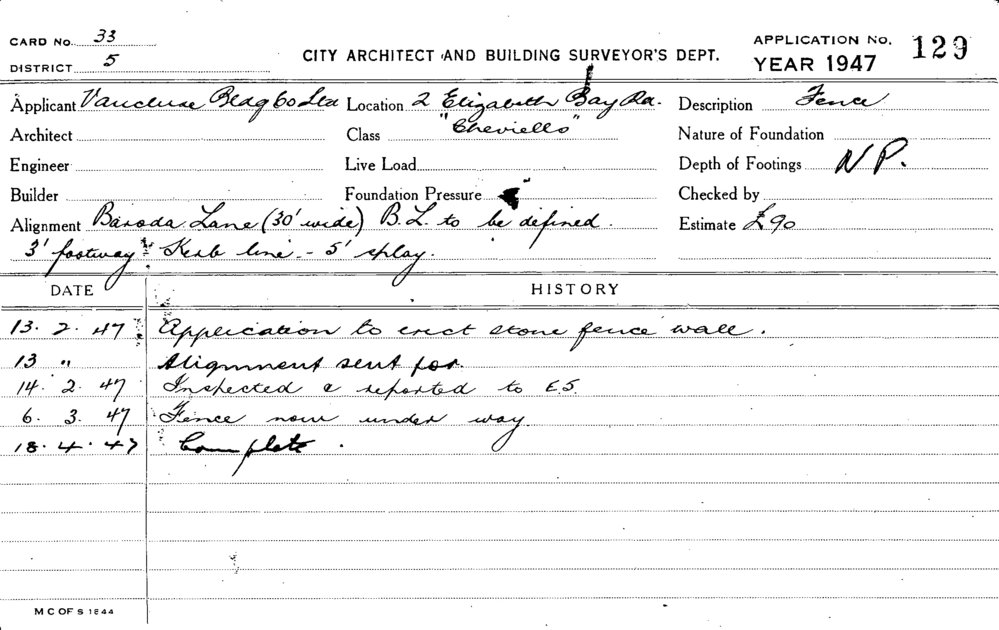 CARD No. 33
DISTRICT 5
CITY ARCHITECT AND BUILDING SURVEYOR'S DEPT.
APPLICATION No. 129
YEAR 1947
Applicant Vaucluse Bldg Co Ltd Location 2 Elizabeth Bay Rd. Description Fence
Architect Class "Cheviells" Nature of Foundation
Engineer Live Load Depth of Footings N P.
Builder Foundation Pressure Checked by
Alignment Baroda Lane (30' wide) B.L. to be defined. Estimate £90
3' footway - Kerb line - 5' splay.
DATE HISTORY
13. 2. 47 Application to erect stone fence wall.
13 " Alignment sent for.
14. 2. 47 Inspected & reported to E.S.
6. 3. 47 Fence now under way.
18. 4. 47 Complete.
M C OF S 1844